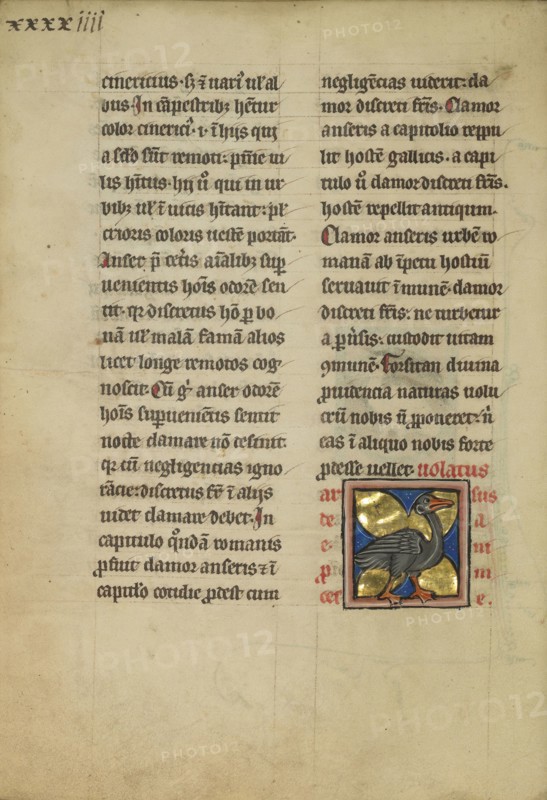 xxxxiiii
cinericius. sꝫ ⁊ uarī ul' al
bus. In cāpestribꝫ hētur
color cinericī. i. ī hijs qui
a sc̄do sūt remoti: pm̄ie ui
lis hītus. hij ū qui in ur
bibꝫ ul' ī uicis hītant: pl'
crioris coloris ueste portāt.
Anser p̄ cet̄is aīalibꝫ sup
uenientis hoīs odorē sen
tit. qr discretus hō p bo
nā ul' malā famā alios
licet longe remotos cog
noscit. Cū gͥ anser odorē
hoīs supueniētis sentit
nocte clamare nō desinit.
qr cū negligencias igno
rācie: discretus fr̄ ī alijs
uidet clamare debet. In
capitulo qn̄dā romanis
ꝓfuit clamor anseris ⁊ ī
capitl'o cotidie ꝓdest cum
negligēcias uiderit: cla
mor discreti fr̄is. Clamor
anseris a capitolio reppu
lit hostē gallicis. a capi
tulo ū clamor discreti fr̄is.
hostē repellit antiqum.
Clamor anseris urbē ro
manā ab īpetu hostiū
seruauit īmunē. clamor
discreti fr̄is: ne turbetur
a puͥsis: custodit uitam
ꝯmunē. Forsitan diuina
ꝓuidencia naturas uolu
crū nobis n̄ ꝓponeret: n̄
eas ī aliquo nobis forte
ꝓdesse uellet. uolatus
ar sus
de a
e. m
ꝓ m
cel e.